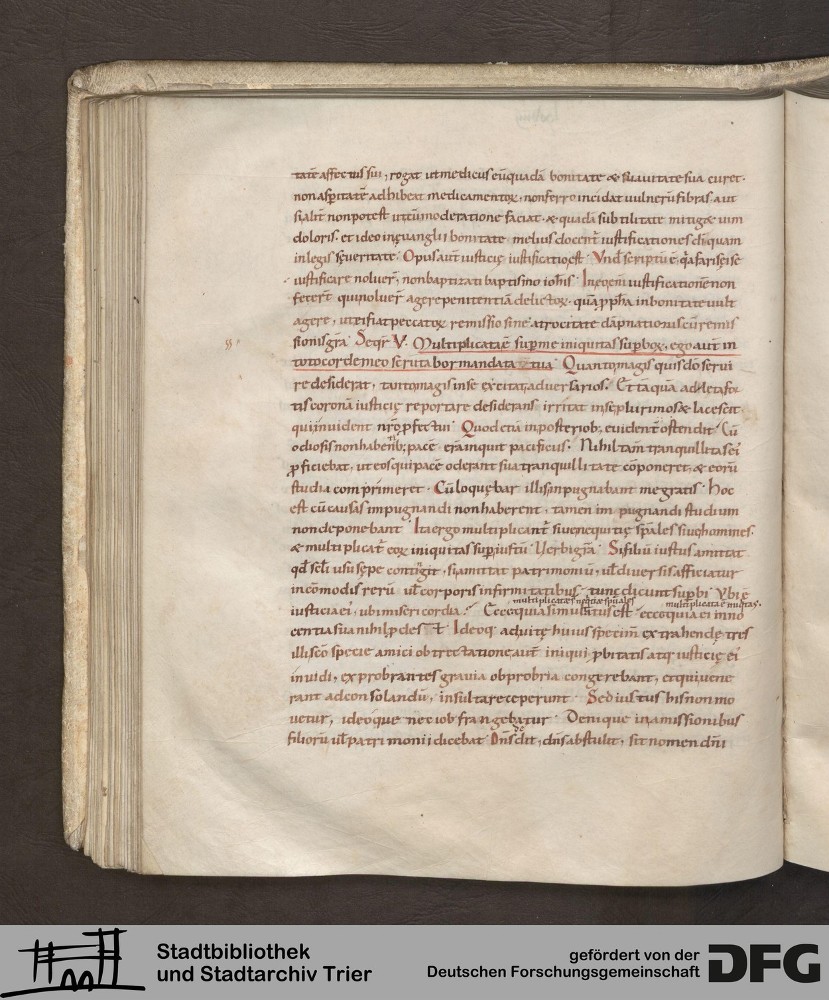 tate affectus sui, rogat ut medicus eũ quadã bonitate & suavitate sua curet.
non asperitatẽ adhibeat medicamentoꝝ, non ferro incidat vulnerũ fibras. aut
si aliter non potest, utcum moderatione faciat. & quadã subtilitate mitiget vim
doloris. et ideo in ęuangelii bonitate melius docent iustificationes di quam
in legis seueritate. Opus aut iusticię iustificatio est. Vnde scriptũ ẽ. qa farisei se
iustificare noluer, non baptizati baptismo iohis. Ineo enim iustificationẽ non
fecert qui noluer agere penitentiã delictoꝝ. quã ppha in bonitate uult
agere, ut ei fiat peccatoꝝ remissio sine atrocitate dãpnationis cũ remis
sionis gra. Seqr V. Multiplicata ẽ sup me iniquitas supboꝝ, ego aut in
toto corde meo scrutabor mandata tua. Quanto magis quis do serui
re desiderat, tanto magis in se excitat aduersarios. Et tãquã adletafor
tis coronã iusticię reportare desiderans irritat in se plurimos & lacescit
qui inuident nro pfectui. Quod etiã in posteriob; euident ostendit. Cũ
odiosis non habenb; pacẽ erã inquit pacificus. Nihil tam tranquillitas ei
pficiebat, ut eos qui pacẽ oderant sua tranquillitate cõponeret, & eorũ
studia comprimeret. Cũ loquębar illis inpugnabant me gratis. Hoc
est cũ causas impugnandi non haberent, tamen impugnandi studium
non deponebant. Ita ergo multiplicant siue nequitię spales siue homines.
& multiplicat eoꝝ iniquitas sup iustũ. Verbi gra. Si filiũ iustus amittat
qd scli usu sępe contigit, si amittat patrimoniũ, ul diuersis afficiatur
incõmodis rerũ ul corporis infirmitatibus, tunc dicunt supbi. Vbi ẽ
iusticia ei, ubi misericordia. Ecce quia simulatus est ecce quia ei inno
multiplicatae nequitiae spuales multiplicata ẽ iniqtas.
centia sua nihil pdest. Ideoq; ad uitę huius speciem extrahendę tres
illi sco specie amici obtrectatione aut iniqui pbitatis atq; iusticię ei
inuidi, exprobrantes gravia obprobria congerebant, et qui uene
rant ad consolandũ, insultare ceperunt. Sed iustus his non mo
uetur, ideoque nec iob frangebatur. Denique in amissionibus
filiorũ ul patrimonii dicebat. Dns dedit, dns abstulit, sit nomen dni
Stadtbibliothek
und Stadtarchiv Trier
gefördert von der
Deutschen Forschungsgemeinschaft
DFG